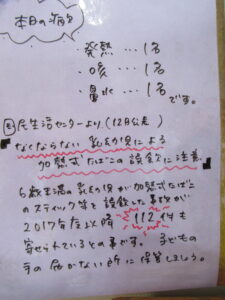 本日の病欠
・発熱…1名
・咳…1名
・鼻水…1名
です。
国民生活センターより(12月公表)
なくならない乳幼児による
加熱式たばこの誤飲に注意
6歳未満の乳幼児が加熱式たばこ
のスティック等を誤飲した事故が
2017年度以降 112件も
寄せられているとの事です。子どもの
手の届かない所に保管しましょう。